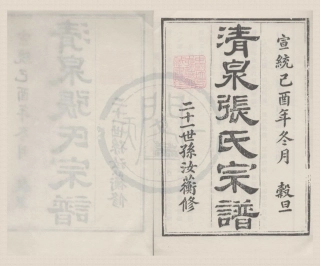 宣統己酉年冬月　穀旦
清泉張氏宗譜
二十一世孫汝蘅修